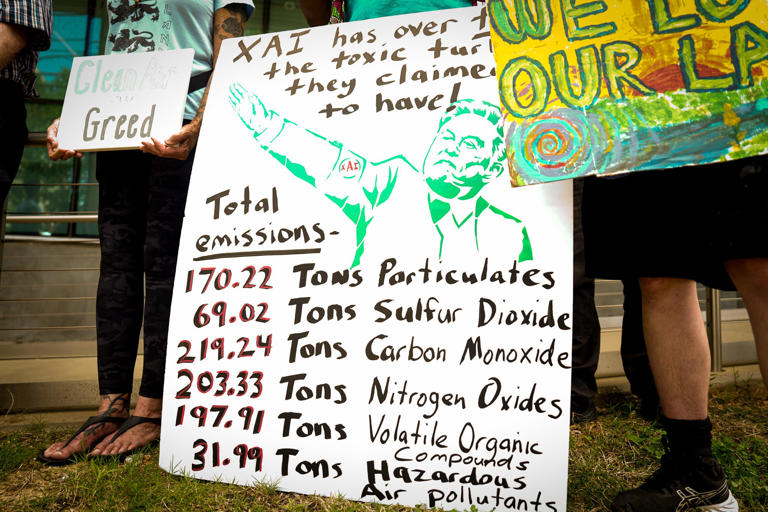 Clean Air
Greed
XAI has over
the toxic
they claimed
to have!
xAI
Total
emissions-
170.22 Tons Particulates
69.02 Tons Sulfur Dioxide
219.24 Tons Carbon Monoxide
203.33 Tons Nitrogen Oxides
197.91 Tons Volatile Organic
Compounds
31.99 Tons Hazardous
Air pollutants
WE
OUR